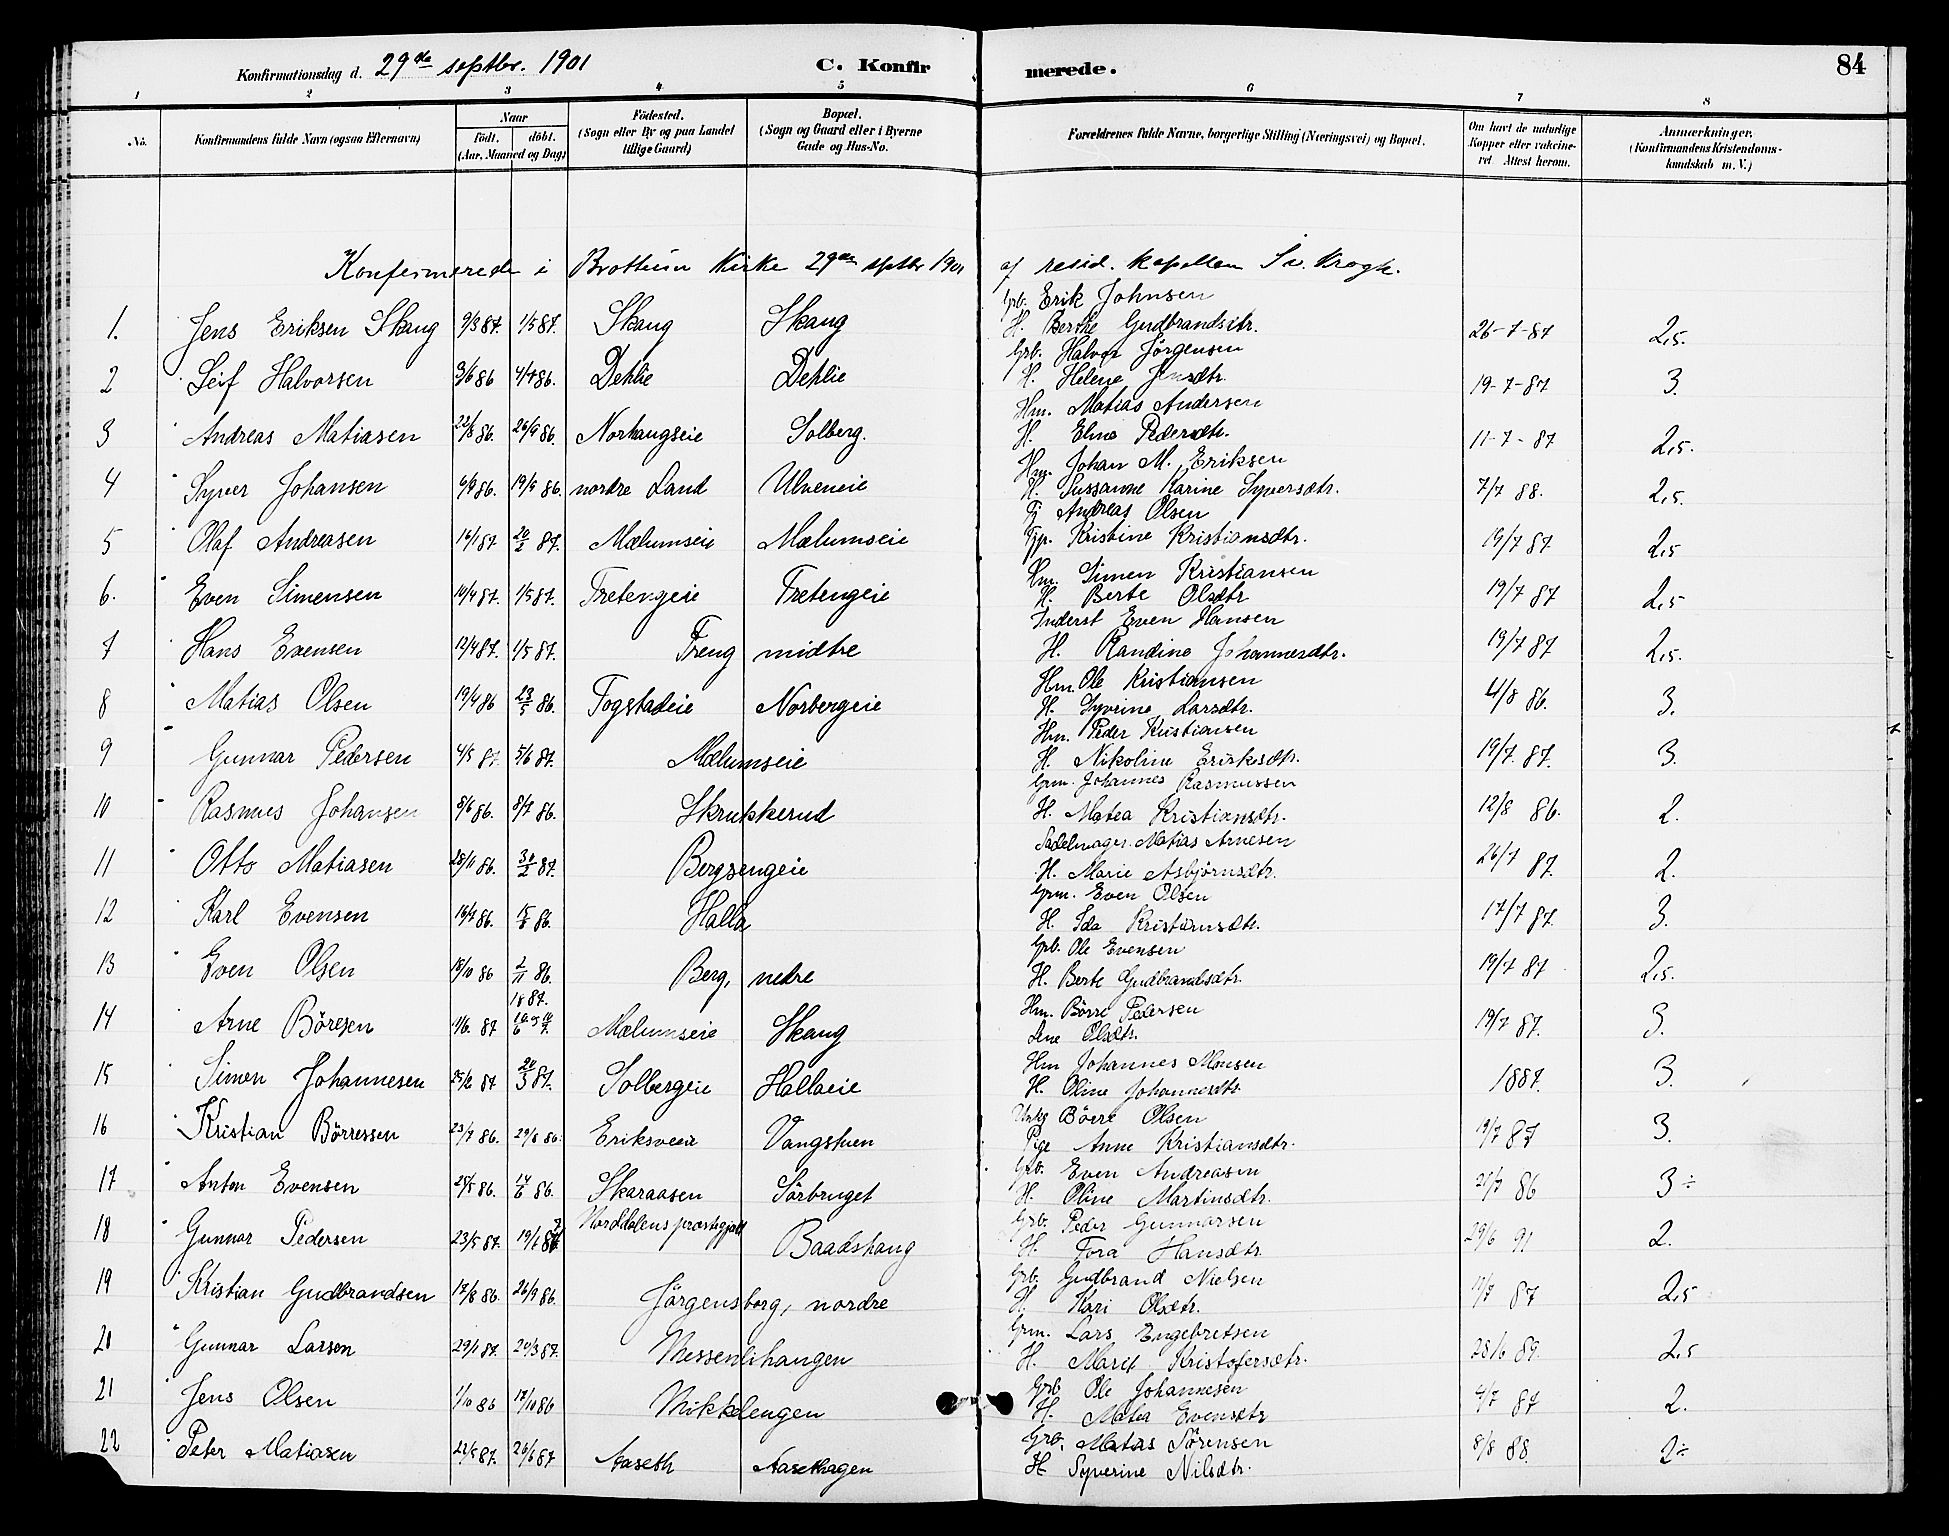 Konfirmationsdag d. 29de septbr. 1901 C. Konfirmerede. 84
1 2 3 4 5 6 7 8
No. Konfirmandens fulde Navn (ogsaa Efternavn) Naar født, døbt. (Aar, Maaned og Dag) Fødested. (Sogn eller By og paa Landet tillige Gaard) Bopæl. (Sogn og Gaard eller i Byerne Gade og Hus-No. Forældrenes fulde Navne, borgerlige Stilling (Næringsvei) og Bopæl. Om havt de naturlige Kopper eller vakcineret. Attest herom. Anmærkninger. (Konfirmandens Kristendomskundskab m. V.)
Konfirmerede i Brøttum Kirke 29de septbr 1901 af resid. kapellan Sv. Krogh.
Grb. Erik Johnsen
1. Jens Eriksen Skaug 9/3 87. 1/5 87. Skaug Skaug H. Berthe Gudbrandsdtr. 26-7-87 2,5.
Grb. Halvor Jörgensen
2 Leif Halvorsen 3/6 86 4/7 86. Dehlie Dehlie H. Helene Jensdtr. 19-7-87 3.
Hm. Matias Andersen
3 Andreas Matiasen 22/8 86. 26/9 86. Norhaugseie Solberg. H. Eline Pedersdtr. 11-7-87 2,5.
Hm. Johan M. Eriksen
4 Syver Johansen 6/9 86. 19/9 86. nordre Land Ulveneie H. Sussanne Karine Syversdtr. 7/7 88. 2,5.
Tj Andreas Olsen
5 Olaf Andreasen 14/1 87. 20/2 87. Mælumseie Mælumseie Tjp. Kristine Kristiansdtr. 19/7 87. 2,5
Hm. Simen Kristiansen
6. Even Simensen 14/4 87. 1/5 87. Tretengeie Tretengeie H. Berte Olsdtr 19/7 87 2,5
Inderst Even Hansen
7 Hans Evensen 12/4 87. 1/5 87. Freng midtre H. Randine Johannesdtr. 19/7 87 2,5.
Hm. Ole Kristiansen
8 Matias Olsen 19/4 86 23/5 86. Fogstadeie Norbergeie H. Syvrine Larsdtr. 4/8 86. 3.
Hm. Peder Kristiansen
9 Gunnar Pedersen 4/5 87. 5/6 87. Mælumseie H. Nikoline Eriksdtr. 19/7. 87. 3.
Grm. Johannes Rasmussen
10 Rasmus Johansen 8/6 86. 8/7 86. Skrukkerud H. Matea Kristiansdtr. 12/8 86. 2.
Sadelmager Matias Arnesen
11 Otto Matiasen 28/11 86. 2/2 87. Bergsengeie H. Marie Asbjørnsdtr. 26/7 87. 2.
Grm. Even Olsen
12 Karl Evensen 14/7 86. 15/8 86. Halla H. Ida Kristiansdtr. 17/7 87. 3.
Grb. Ole Evensen
13 Even Olsen 18/10 86 2/11 86. Berg, nedre H. Berte Gudbrandsdtr. 19/7 87 2,5.
Hm. Börre Pedersen
14 Arne Böresen 4/6. 87 Mælumseie Skaug Lene Olsdtr. 19/7 87. 3.
Hm Johannes Monsen
15 Simen Johannesen 25/2 87 20/3 87. Solbergeie Hallaeie H. Oline Johannesdtr 1887. 3.
Ungk Börre Olsen
16 Kristian Börressen 23/7 86. 29/8 86. Vangstuen Pige Anne Kristiansdtr. 19/7 87 3.
Grb. Even Andreasen
17 Anton Evensen 25/5 86. 14/6 86. Skaraasen Sörbruget H. Oline Martinsdtr. 21/7 86 3÷
Grb. Peder Gunnarsen
18 Gunnar Pedersen 23/5 87. 19/6 87 Norddalens præstegjeld Baadshaug H. Tora Hansdtr 29/6 91 2.
Grb. Gudbrand Nielsen
19 Kristian Gudbrandsen 17/8 86. 26/9 86. Jörgensborg, nordre H. Kari Olsdtr. 19/7 87 2,5
Grm. Lars Engebretsen
20 Gunnar Larsen 29/1 87. 20/3 87. Messenlihaugen H. Marit Kristofersdtr. 28/6 89. 2,5
Grb Ole Johannesen
21 Jens Olsen 1/10 86 17/10 86 Mikkelengen H. Matea Evensdtr 4/7 87 2.
Grb. Matias Sörensen
22 Peter Matiasen 22/5 87. 26/6 87 Aaseth Aasethagen H Syverine Nilsdtr. 8/8 88. 2÷